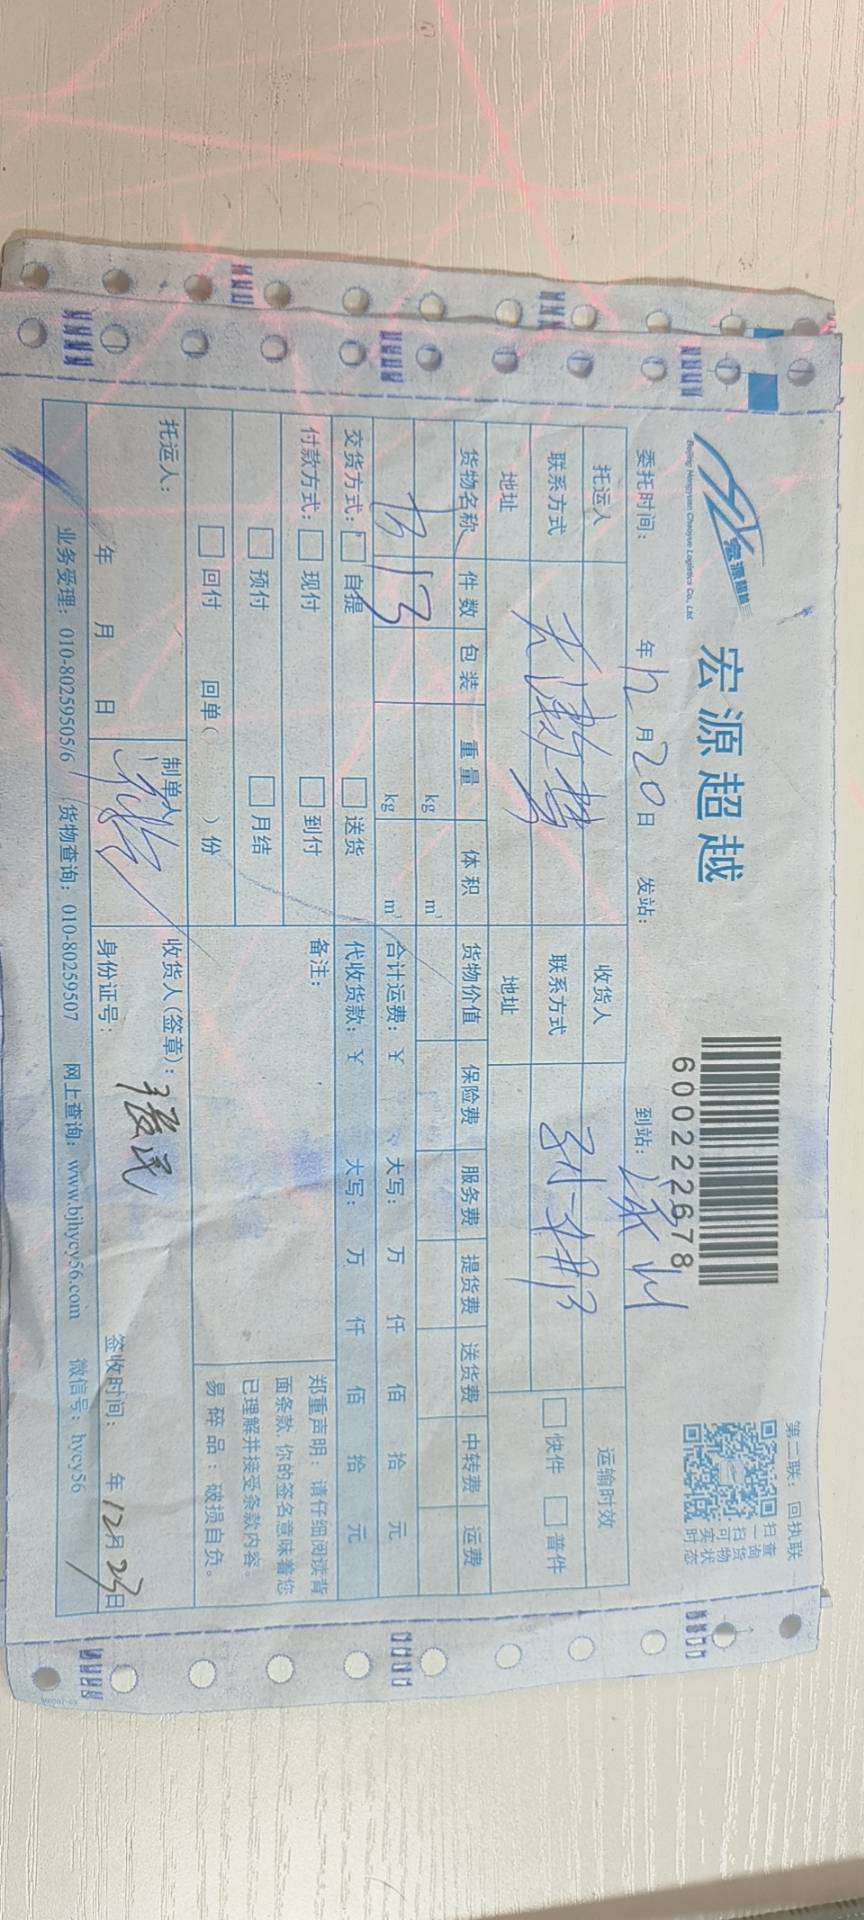 宏源超越
宏源超越
Beijing Hongyuan Chaoyue Logistics Co., Ltd
6002222678
第二联：回执联
扫一扫可实时
查询货物状态
委托时间： 年12月20日 发站： 到站：深圳
托运人 收货人 运输时效
联系方式 联系方式 快件 普件
地址 地址
货物名称 件数 包装 重量 体积 货物价值 保险费 服务费 提货费 送货费 中转费 运费
13 kg m³
kg m³ 合计运费：￥ 大写： 万 仟 佰 拾 元
交货方式： 自提 送货 代收货款：￥ 大写： 万 仟 佰 拾 元
付款方式： 现付 到付 备注：
预付 月结
回付 回单（ ）份
郑重声明：请仔细阅读背
面条款，你的签名意味着您
已理解并接受条款内容。
易碎品：破损自负。
托运人： 制单人 收货人(签章)：
年 月 日 身份证号： 签收时间： 年12月23日
业务受理：010-80259505/6 货物查询：010-80259507 网上查询：www.bjhycy56.com 微信号：hycy56